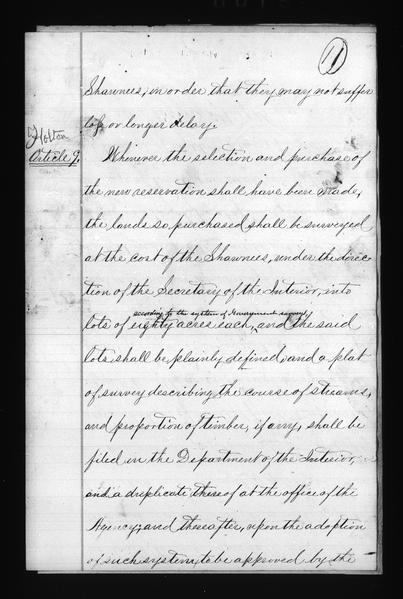 11
Shawnees, in order that they may not suffer
or longer delay.
Holton
Article 9.
Whenever the selection and purchase of
the new reservation shall have been made,
the lands so purchased shall be surveyed
at the cost of the Shawnees, under the direc
tion of the Secretary of the Interior, into
according to the system of Government surveys
lots of eighty acres each, and the said
lots shall be plainly defined, and a plat
of survey describing the course of streams,
and proportion of timber, if any, shall be
filed in the Department of the Interior,
and a duplicate thereof at the office of the
Agency, and thereafter, upon the adoption
of such system, to be approved by the